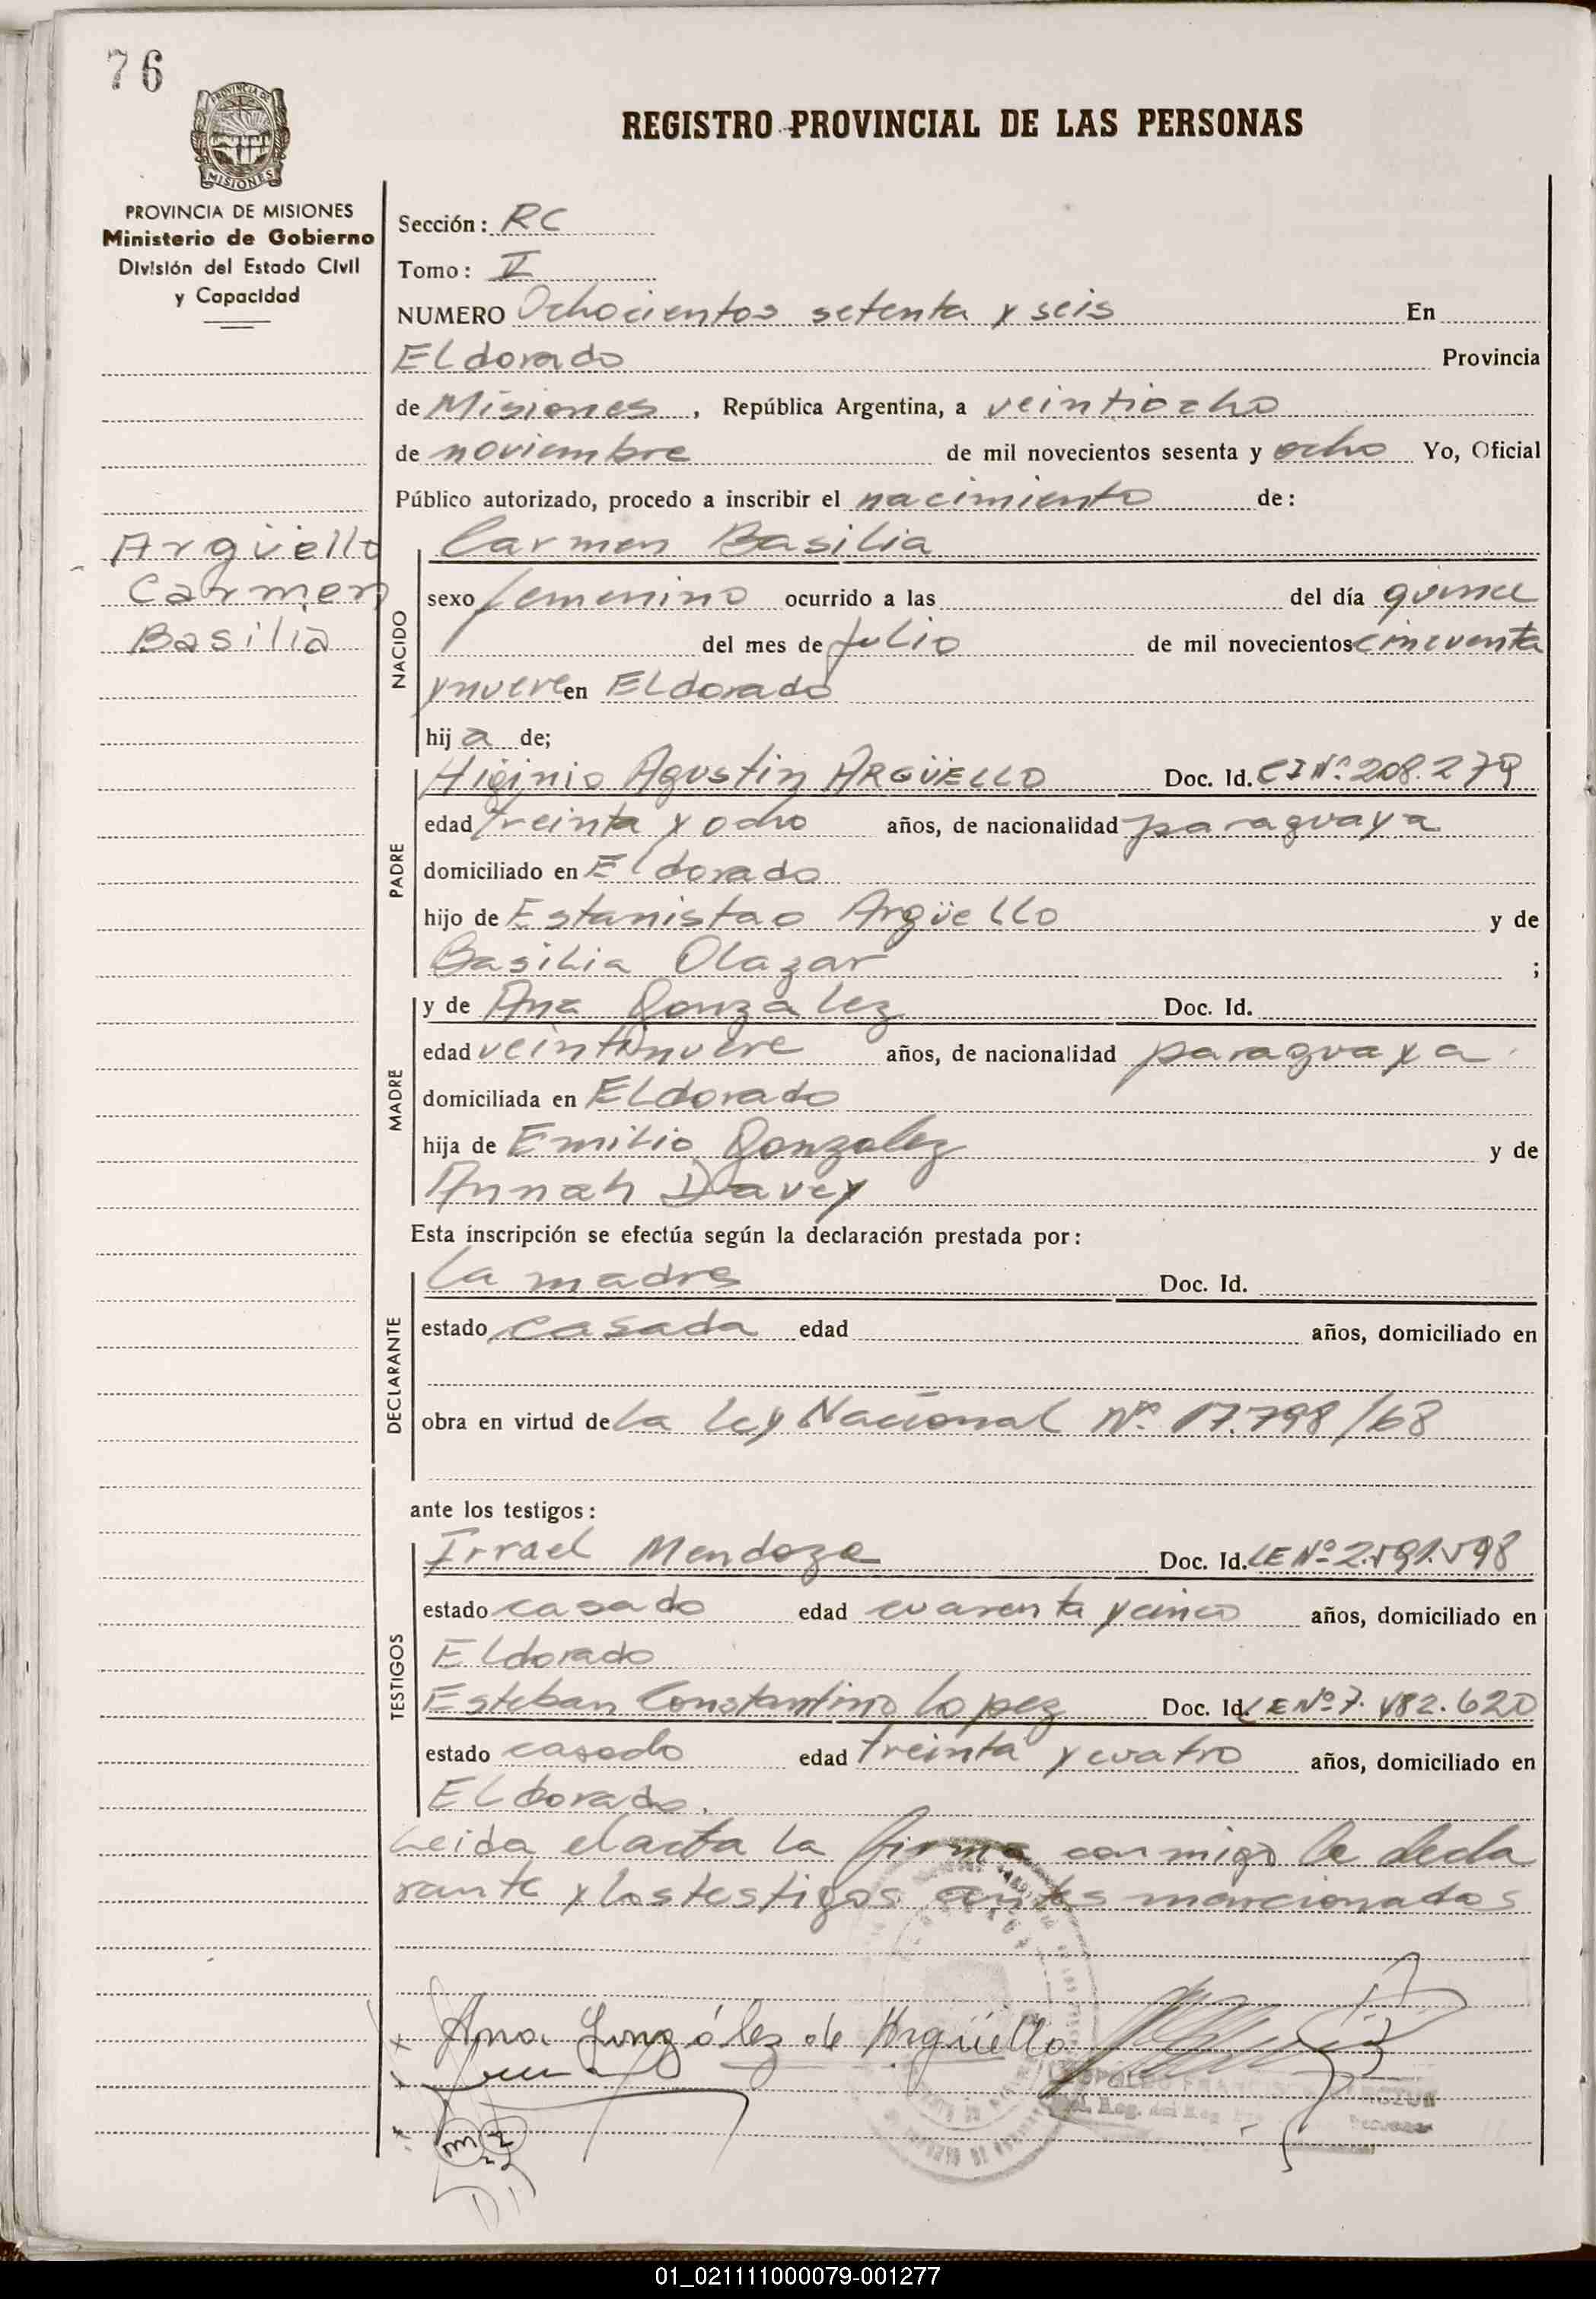 76
PROVINCIA DE
MISIONES
REGISTRO PROVINCIAL DE LAS PERSONAS
PROVINCIA DE MISIONES
Ministerio de Gobierno
División del Estado Civil
y Capacidad
Argüello
Carmen
Basilia
Sección: RC
Tomo: V
NUMERO Ochocientos setenta y seis En
Eldorado Provincia
de Misiones, República Argentina, a veintiocho
de noviembre de mil novecientos sesenta y ocho Yo, Oficial
Público autorizado, procedo a inscribir el nacimiento de:
NACIDO
Carmen Basilia
sexo femenino ocurrido a las del día quince
del mes de julio de mil novecientos cincuenta
y nueve en Eldorado
hij a de;
PADRE
Higinio Agustin ARGÜELLO Doc. Id. CI Nº 208.279
edad treinta y ocho años, de nacionalidad paraguaya
domiciliado en Eldorado
hijo de Estanistao Argüello y de
Basilia Olazar ;
MADRE
y de Ana Gonzalez Doc. Id.
edad veintinueve años, de nacionalidad paraguaya
domiciliada en Eldorado
hija de Emilio Gonzalez y de
Annah Davey
Esta inscripción se efectúa según la declaración prestada por:
DECLARANTE
La madre Doc. Id.
estado casada edad años, domiciliado en
obra en virtud de la Ley Nacional Nº 17.798/68
ante los testigos:
TESTIGOS
Irrael Mendoza Doc. Id. LE Nº
estado casado edad cuarenta y cinco años, domiciliado en
Eldorado
Esteban Constantino Lopez Doc. Id. LE Nº 7.
estado casado edad treinta y cuatro años, domiciliado en
Eldorado.
Leida el acta la firma conmigo la decla
rante y los testigos antes mencionados
Ana González de Argüello
01_021111000079-001277